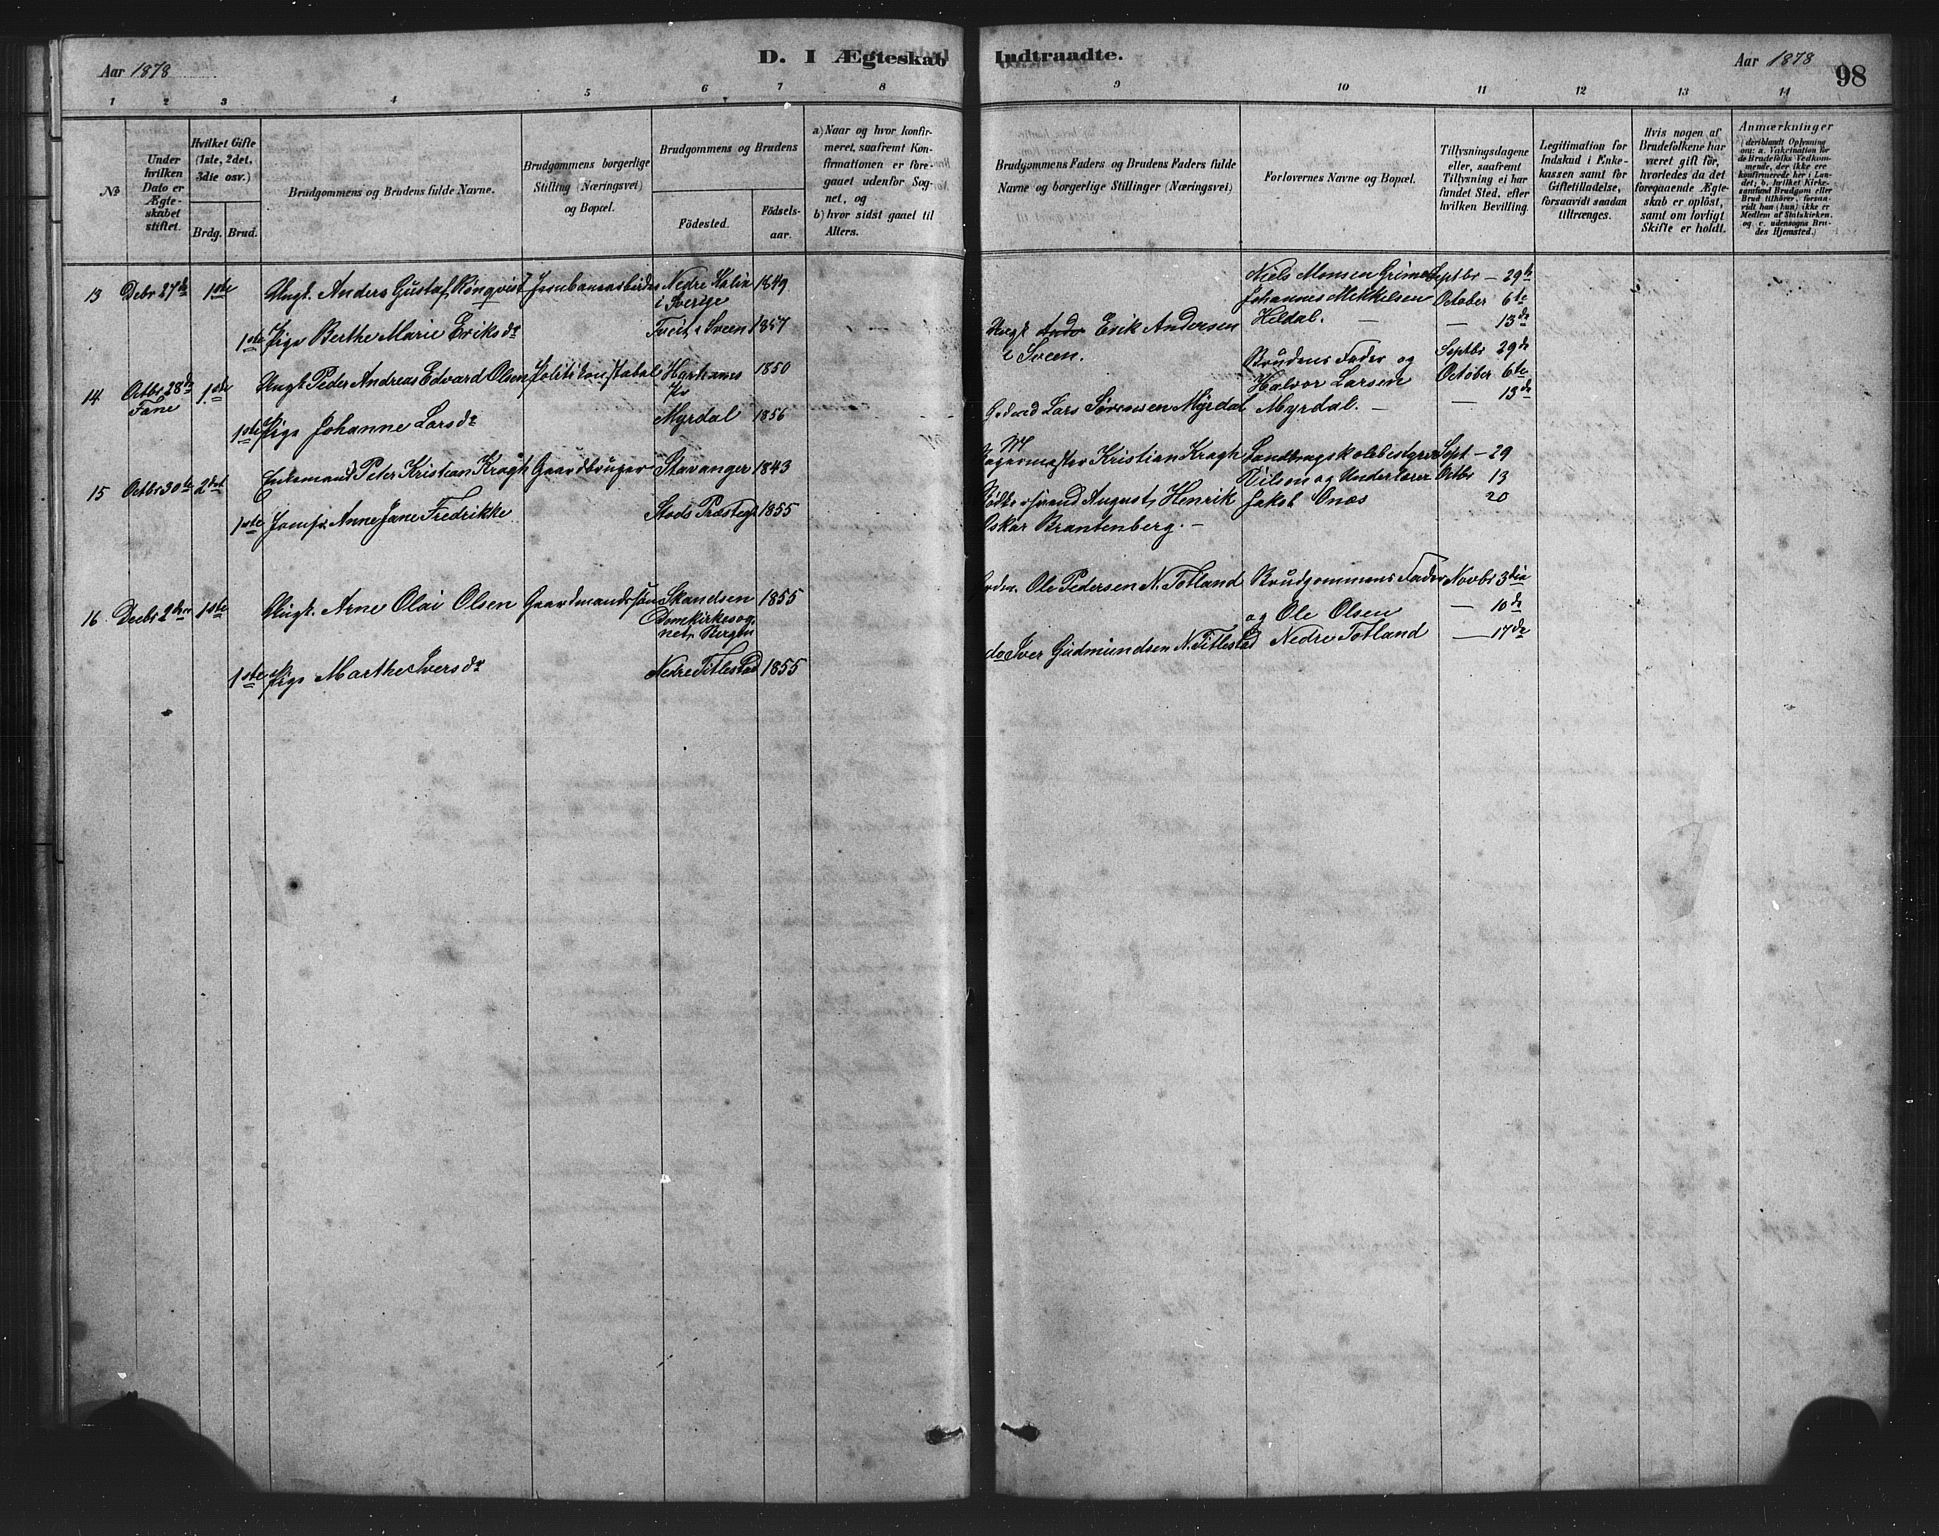 Aar 1878
D. I Ægteskab Indtraadte.
Aar 1878
98
1 2 3 4 5 6 7 8 9 10 11 12 13 14
№
Under hvilken Dato er Ægteskabet stiftet.
Hvilket Gifte (1ste, 2det, 3die osv.)
Brdg. Brud.
Brudgommens og Brudens fulde Navne.
Brudgommens borgerlige Stilling (Næringsvei) og Bopæl.
Brudgommens og Brudens
Födested.
Födselsaar.
a) Naar og hvor konfirmeret, saafremt Konfirmationen er foregaaet udenfor Sognet, og
b) hvor sidst gaaet til Alters.
Brudgommens Faders og Brudens Faders fulde Navne og borgerlige Stillinger (Næringsvei).
Forlovernes Navne og Bopæl.
Tillysningsdagene eller, saafremt Tillysning ei har fundet Sted, efter hvilken Bevilling.
Legitimation for Indskud i Enkekassen samt for Giftetilladelse, forsaavidt saadan tiltrænges.
Hvis nogen af Brudefolkene har været gift för, hvorledes da det foregaaende Ægteskab er oplöst, samt om lovligt Skifte er holdt.
Anmærkninger
(deriblandt Oplysning om: a. Vakcination for de Brudefolks Vedkommende, der ikke ere konfirmerede her i Landet; b. hvilket Kirkesamfund Brudgom eller Brud tilhörer, forsaavidt han (hun) ikke er Medlem af Statskirken, og c. udensogns Brudes Hjemsted.)
13 Debr 27de 1ste Ungk. Anders Gustaf Rönqvist Jernbanearbeider Nedre i Sverige 1849
Niels Monsen Grimen Septbr — 29de
Johannes Mikkelsen October 6te
1ste Pige Berthe Marie Eriksdr Tveit i Sveen 1857
Ungk Erik Andersen Hildal. — — 13de
i Sveen.
14 Octbr 28de Fane 1.ste Ungk. Peder Andreas Edvard Olsen Politikonstabel Harhams Pr 1850
Brudens Fader og Septbr 29de
Halvor Larsen October 6te
1ste Pige Johanne Larsdr Myrdal 1856
Lars Sørensen Myrdal Myrdal. — — 13de
15 Octbr 30te 2det Enkemand Peter Kristian Kragh Gaardbruger Stavanger 1843
Kristian Kragh Landbrugskolebestyrer Sept — 29
Nilsen og Underlærer Octbr 13
1ste Jomfr. Anne Jane Fredrikke Stods Præstegj 1855
August Henrik Jakob Onæs 20
Oskar Brantenberg. —
16 Decbr 2den 1ste Ungk. Arne Olai Olsen Gaardmandssøn Skandsen 1855
Domkirkesognet, Bergen
Ole Pedersen N. Totland Brudgommens Fader Novbr 3die
og Ole Olsen — 10de
1ste Pige Marthe Iversdr Nedre Titlestad 1855
do Iver Gudmundsen N. Titlestad Nedre Totland — 17de